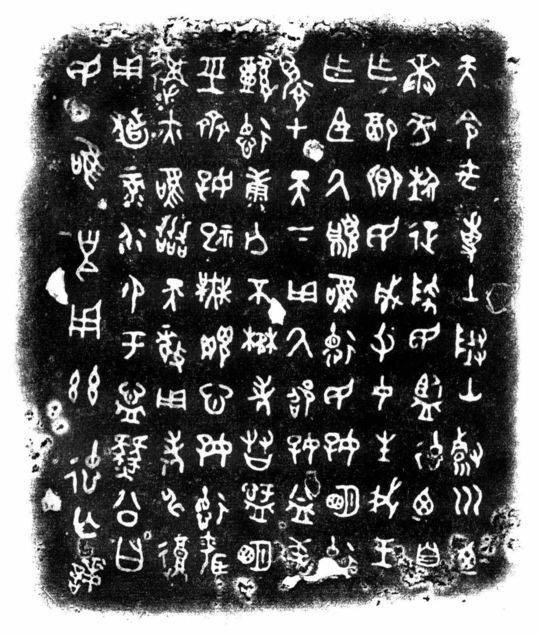 天令禹尃土隓山濬川迺
方埶征降民監德迺自
乍配卿民成父母生我王
乍臣氒沬唯德民好明德
才天下用氒邵好益
懿德康亡不楙孝友明
巠齊好祀無心好德婚
遘亦唯協天釐用考神复
用祓祿永御于公曰
民唯克用茲德亡誨